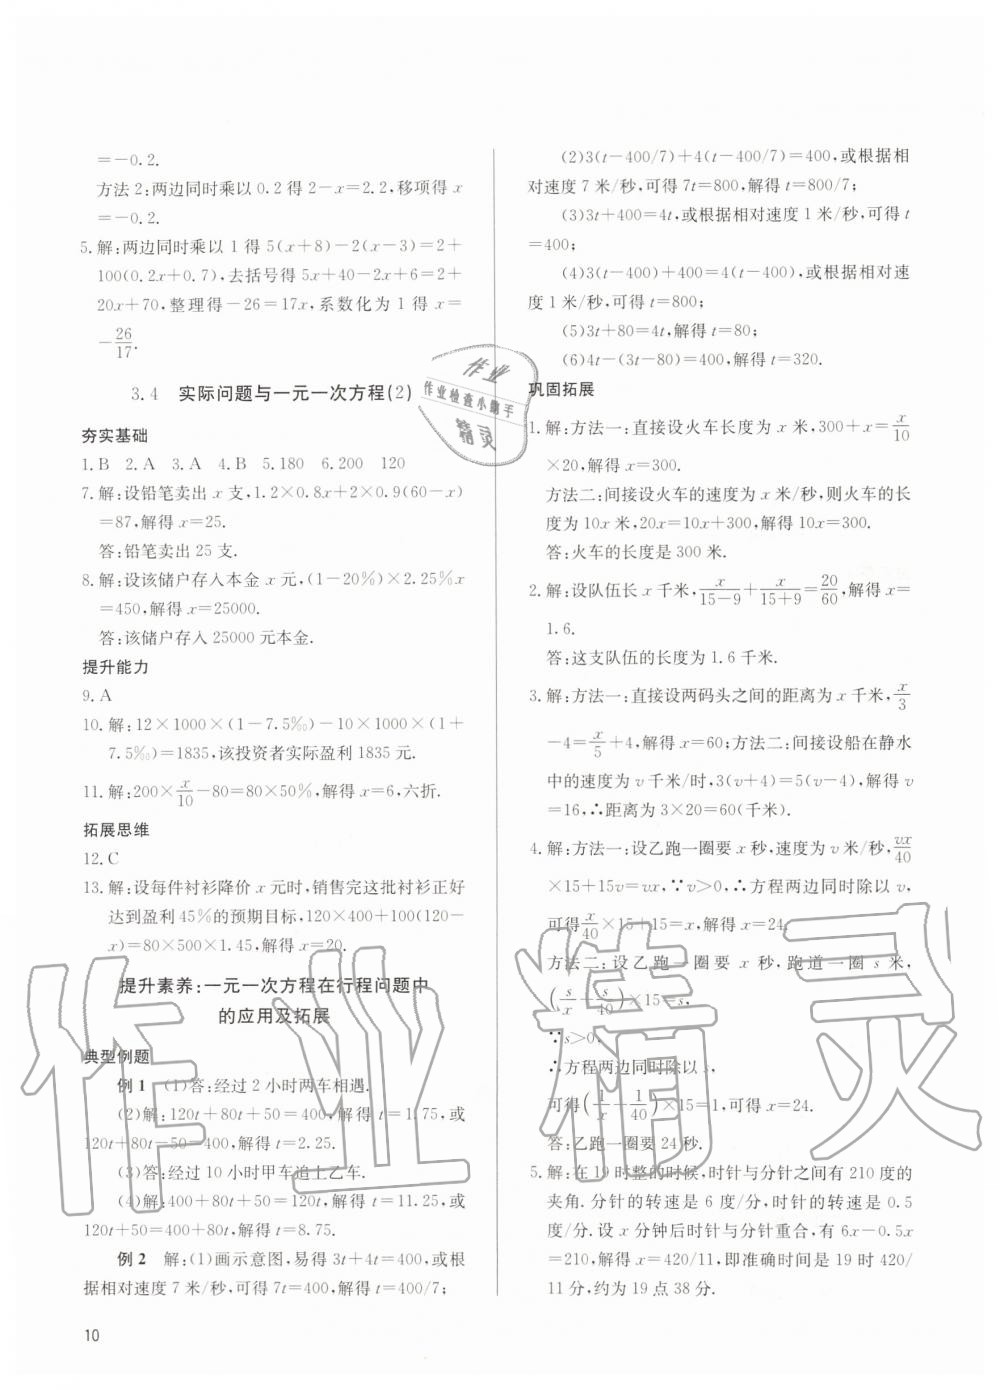 =-0.2.
方法2:两边同时乘以0.2得2-x=2.2,移项得x
=-0.2.
5.解:两边同时乘以1得5(x+8)-2(x-3)=2+
100(0.2x+0.7),去括号得5x+40-2x+6=2+
20x+70,整理得-26=17x,系数化为1得x=
-26/17.
3.4 实际问题与一元一次方程(2)
夯实基础
1.B 2.A 3.A 4.B 5.180 6.200 120
7.解:设铅笔卖出x支,1.2×0.8x+2×0.9(60-x)
=87,解得x=25.
答:铅笔卖出25支.
8.解:设该储户存入本金x元,(1-20%)×2.25%x
=450,解得x=25000.
答:该储户存入25000元本金.
提升能力
9.A
10.解:12×1000×(1-7.5‰)-10×1000×(1+
7.5‰)=1835,该投资者实际盈利1835元.
11.解:200×x/10-80=80×50%,解得x=6,六折.
拓展思维
12.C
13.解:设每件衬衫降价x元时,销售完这批衬衫正好
达到盈利45%的预期目标,120×400+100(120-
x)=80×500×1.45,解得x=20.
提升素养:一元一次方程在行程问题中
的应用及拓展
典型例题
例1 (1)答:经过2小时两车相遇.
(2)解:120t+80t+50=400,解得t=1.75,或
120t+80t-50=400,解得t=2.25.
(3)答:经过10小时甲车追上乙车.
(4)解:400+80t+50=120t,解得t=11.25,或
120t+50=400+80t,解得t=8.75.
例2 解:(1)画示意图,易得3t+4t=400,或根
据相对速度7米/秒,可得7t=400,解得t=400/7;
(2)3(t-400/7)+4(t-400/7)=400,或根据相
对速度7米/秒,可得7t=800,解得t=800/7;
(3)3t+400=4t,或根据相对速度1米/秒,可得t
=400;
(4)3(t-400)+400=4(t-400),或根据相对速
度1米/秒,可得t=800;
(5)3t+80=4t,解得t=80;
(6)4t-(3t-80)=400,解得t=320.
巩固拓展
1.解:方法一:直接设火车长度为x米,300+x=x/10
×20,解得x=300.
方法二:间接设火车的速度为x米/秒,则火车的长
度为10x米,20x=10x+300,解得10x=300.
答:火车的长度是300米.
2.解:设队伍长x千米,x/(15-9)+x/(15+9)=20/60,解得x=
1.6.
答:这支队伍的长度为1.6千米.
3.解:方法一:直接设两码头之间的距离为x千米,x/3
-4=x/5+4,解得x=60;方法二:间接设船在静水
中的速度为v千米/时,3(v+4)=5(v-4),解得v
=16,∴距离为3×20=60(千米).
4.解:方法一:设乙跑一圈要x秒,速度为v米/秒,vx/40
×15+15v=vx,∵v>0,∴方程两边同时除以v,
可得x/40×15+15=x,解得x=24.
方法二:设乙跑一圈要x秒,跑道一圈s米,
(s/x-s/40)×15=s,
∵s>0,
∴方程两边同时除以s,
可得(1/x-1/40)×15=1,可得x=24.
答:乙跑一圈要24秒.
5.解:在19时整的时候,时针与分针之间有210度的
夹角.分针的转速是6度/分,时针的转速是0.5
度/分.设x分钟后时针与分针重合,有6x-0.5x
=210,解得x=420/11,即准确时间是19时420/
11分,约为19点38分.
10
作业
作业检查小助手
精灵
作业精灵